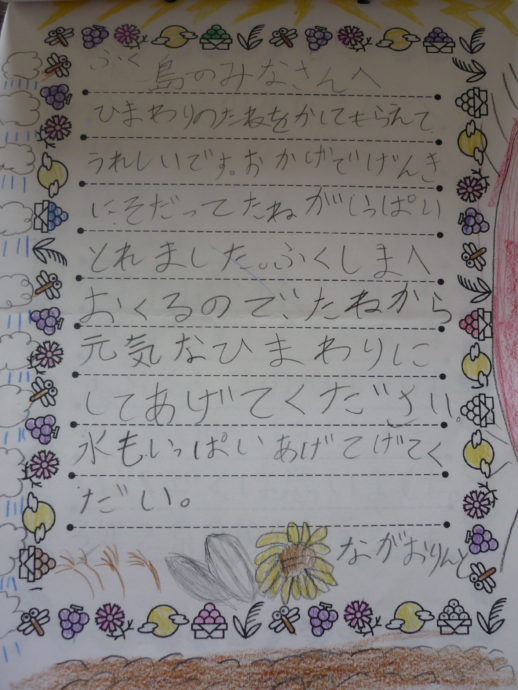 ふく島のみなさんへ
ひまわりのたねをかしてもらえて、
うれしいです。おかげでげんき
に、そだってたねがいっぱい
とれました。ふくしまへ
おくるので、たねから
元気なひまわりに
してあげてください。
水もいっぱいあげてげてく
だい。
ながおりんと